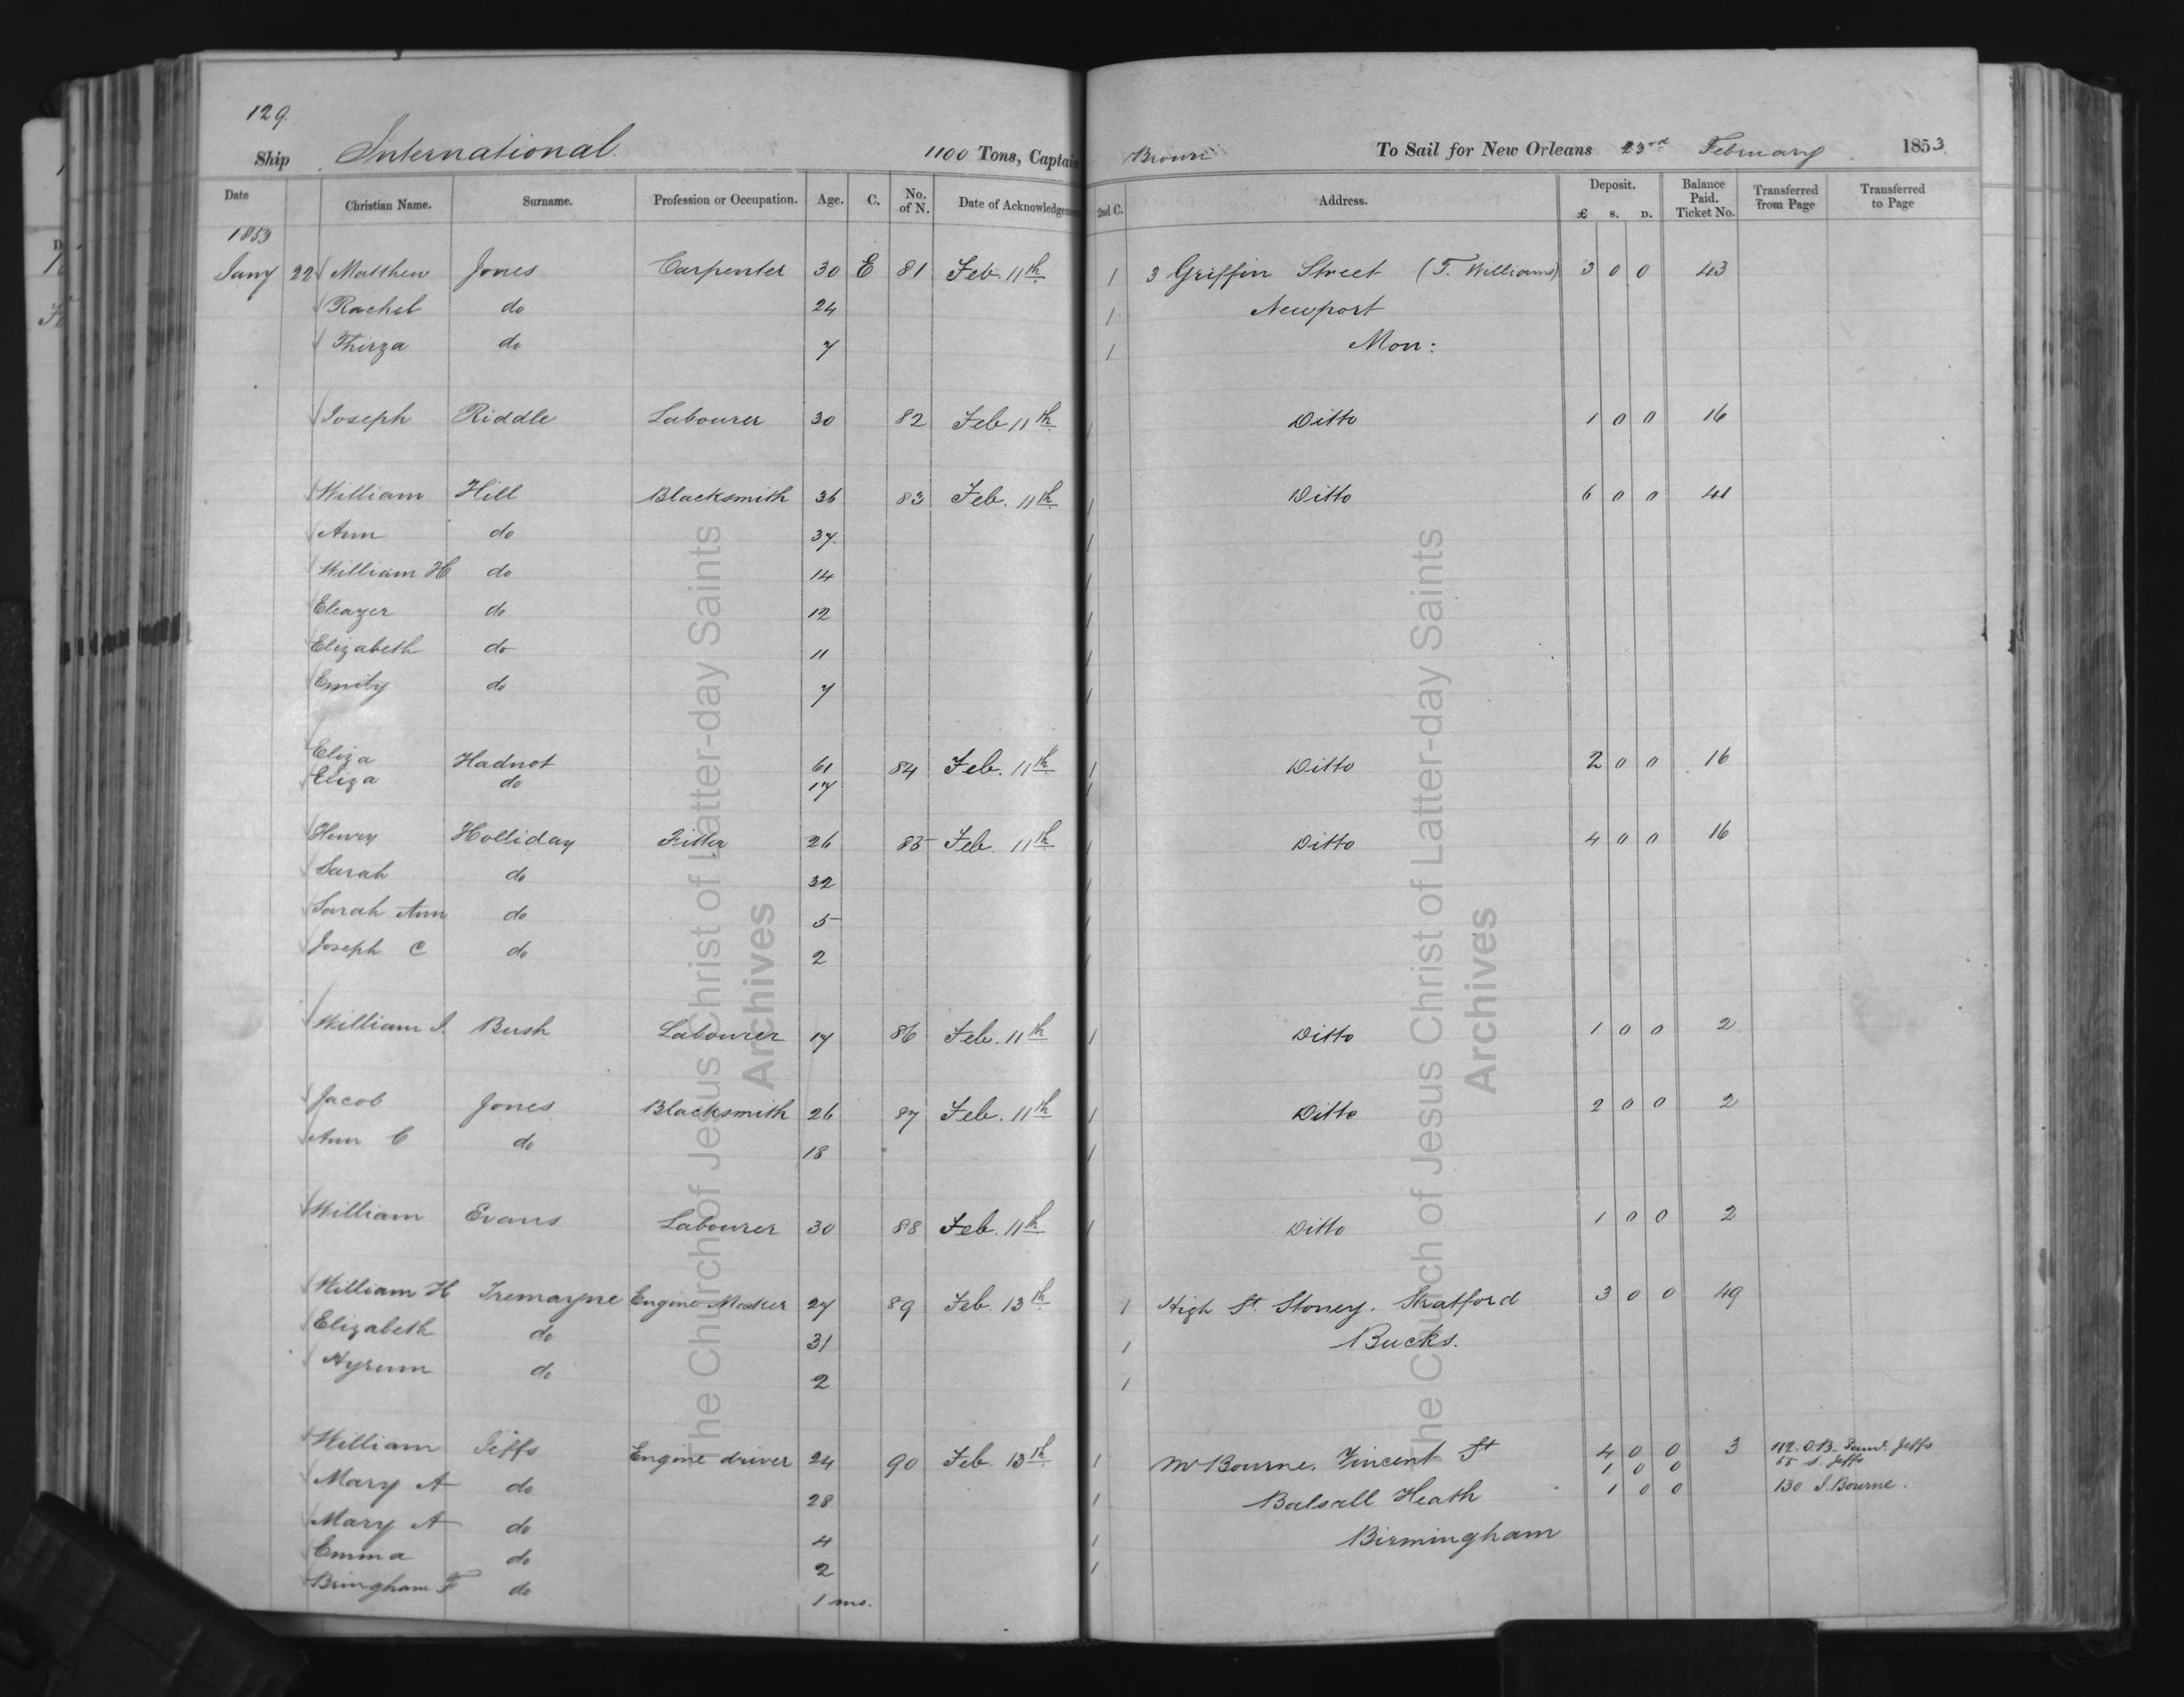 129.
Ship International 1100 Tons, Captain Brown To Sail for New Orleans 23rd February 1853
Date Christian Name. Surname. Profession or Occupation. Age. C. No. of N. Date of Acknowledgement 2nd C. Address. Deposit. £ s. D. Balance Paid. Ticket No. Transferred from Page Transferred to Page
1853
Jany 22 Matthew Jones Carpenter 30 E 81 Feb. 11th 1 3 Griffin Street (T. Williams) 3 0 0 43
Rachel do 24 1 Newport
Thirza do 7 1 Mon:
Joseph Riddle Labourer 30 82 Feb 11th 1 Ditto 1 0 0 16
William Hill Blacksmith 36 83 Feb. 11th 1 Ditto 6 0 0 41
Ann do 37 1
William H do 14 1
Eleazer do 12 1
Elizabeth do 11 1
Emily do 7 1
Eliza Hadnot 61 84 Feb. 11th 1 Ditto 2 0 0 16
Eliza do 17 1
Henry Holliday Fitter 26 85 Feb. 11th 1 Ditto 4 0 0 16
Sarah do 32 1
Sarah Ann do 5 1
Joseph C do 2 1
William J. Bush Labourer 17 86 Feb. 11th 1 Ditto 1 0 0 2
Jacob Jones Blacksmith 26 87 Feb. 11th 1 Ditto 2 0 0 2
Ann C do 18 1
William Evans Labourer 30 88 Feb. 11th 1 Ditto 1 0 0 2
William H Tremayne Engine Maker 27 89 Feb. 13th 1 High St. Stoney. Stratford 3 0 0 49
Elizabeth do 31 1 Bucks.
Hyrum do 2 1
William Jeffs Engine driver 24 90 Feb. 13th 1 Mr Bourne. Vincent St 4 0 0 3 112. O.B. Saml. Jeffs
1 0 0 65 S. Jeffs
Mary A do 28 1 Balsall Heath 1 0 0 130 J. Bourne.
Mary A do 4 1 Birmingham
Emma do 2 1
Bringham F do 1 mo.
The Church of Jesus Christ of Latter-day Saints
Archives
The Church of Jesus Christ of Latter-day Saints
Archives